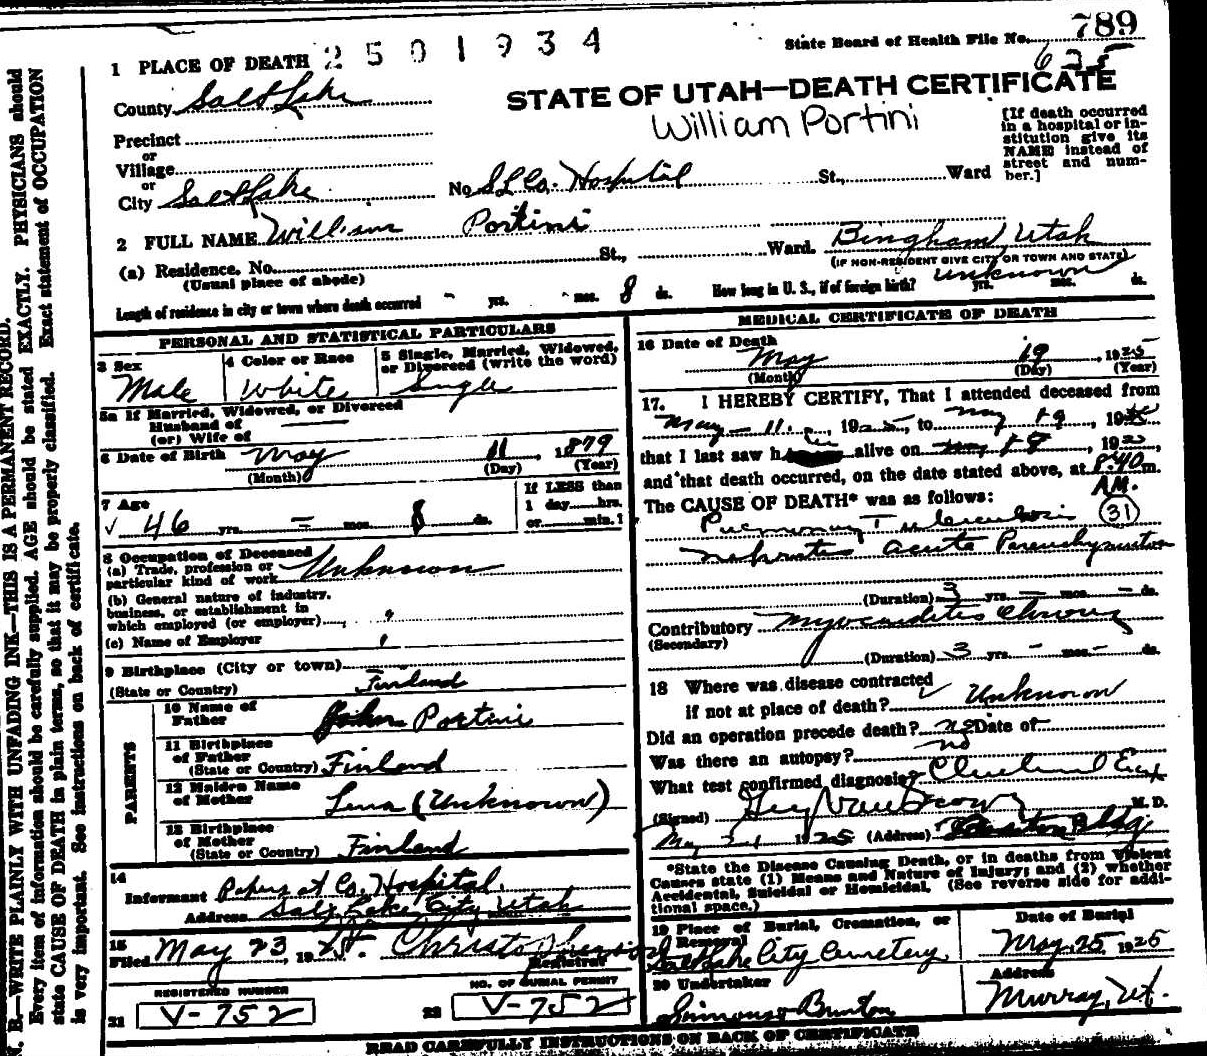 789
State Board of Health File No.
635
2501934
1 PLACE OF DEATH
County Salt Lake
STATE OF UTAH—DEATH CERTIFICATE
William Portini
[If death occurred
in a hospital or in-
stitution give its
NAME instead of
street and num-
ber.]
Precinct
or
Village
or
City Salt Lake No. S L Co. Hospital St., Ward
2 FULL NAME William Portini
(a) Residence. No. St., Ward. Bingham, Utah
(Usual place of abode) (IF NON-RESIDENT GIVE CITY OR TOWN AND STATE)
Length of residence in city or town where death occurred - yrs. - mos. 8 ds. How long in U. S., if of foreign birth? unknown yrs. mos. ds.
PERSONAL AND STATISTICAL PARTICULARS
3 Sex
Male
4 Color or Race
White
5 Single, Married, Widowed,
or Divorced (write the word)
Single
5a If Married, Widowed, or Divorced
Husband of
(or) Wife of
6 Date of Birth May 11, 1879
(Month) (Day) (Year)
7 Age
46 yrs. — mos. 8 ds.
If LESS than
1 day hrs.
or min.?
8 Occupation of Deceased
(a) Trade, profession or
particular kind of work Unknown
(b) General nature of industry,
business, or establishment in
which employed (or employer)
(c) Name of Employer
9 Birthplace (City or town)
(State or Country) Finland
PARENTS
10 Name of
Father John Portini
11 Birthplace
of Father
(State or Country) Finland
12 Maiden Name
of Mother Lena (Unknown)
13 Birthplace
of Mother
(State or Country) Finland
14
Informant Papers at Co. Hospital.
Address Salt Lake City, Utah
15
Filed May 23, 1925.
Registrar
REGISTERED NUMBER
21 V-752
NO. OF BURIAL PERMIT
22 V-752
MEDICAL CERTIFICATE OF DEATH
16 Date of Death
May 19, 1925
(Month) (Day) (Year)
17. I HEREBY CERTIFY, That I attended deceased from
May - 11, 1925, to May 19, 1925
that I last saw him alive on May 18, 1925,
and that death occurred, on the date stated above, at 8:40 m.
AM.
The CAUSE OF DEATH* was as follows:
31
Pulmonary Tuberculosis
Nephritis acute Parenchymatous
(Duration) 3 yrs. — mos. — ds.
Contributory Myocarditis Chronic
(Secondary)
(Duration) 3 yrs. - mos. - ds.
18 Where was disease contracted
if not at place of death? Unknown
Did an operation precede death? no Date of —
Was there an autopsy? no
What test confirmed diagnosis?
(Signed) M. D.
May 21 1925 (Address) Bldg
*State the Disease Causing Death, or in deaths from Violent
Causes state (1) Means and Nature of Injury; and (2) whether
Accidental, Suicidal or Homicidal. (See reverse side for addi-
tional space.)
19 Place of Burial, Cremation, or
Removal
Salt Lake City Cemetery
Date of Burial
May 25, 1925
20 Undertaker
Address
Murray, Ut.
READ CAREFULLY INSTRUCTIONS ON BACK OF CERTIFICATE
N. B.—WRITE PLAINLY WITH UNFADING INK—THIS IS A PERMANENT RECORD.
Every item of information should be carefully supplied. AGE should be stated EXACTLY. PHYSICIANS should
state CAUSE OF DEATH in plain terms, so that it may be properly classified. Exact statement of OCCUPATION
is very important. See instructions on back of certificate.